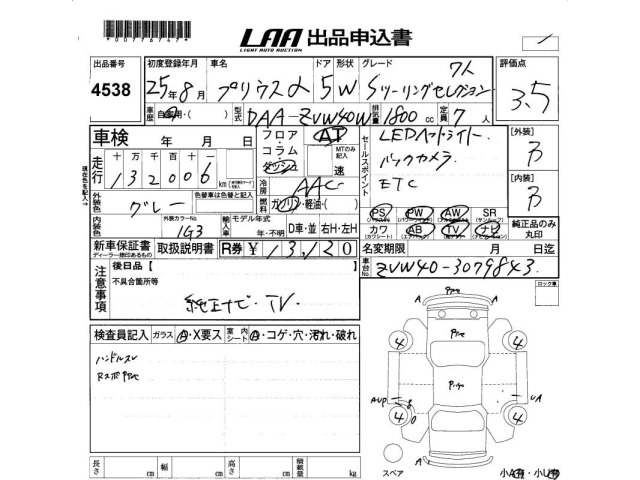 *00776747*
LAA 出品申込書
LIGHT AUTO AUCTION
出品番号 初度登録年月 車名 ドア 形状 グレード 7人 評価点
4538 25年8月 プリウスα 5 W Sツーリングセレクション 3.5
車歴 自家用・( ) 型式 DAA-ZVW40W 排気量 1800 cc 定員 7人
車検 年 月 日 フロア・コラム・ダッシュ AT MTのみ記入 速
セールスポイント LEDヘッドライト.
バックカメラ.
ETC
[外装] B
[内装] B
現状色を記入→
走行 十万千百十 132006 km
冷房 AAC
外装色 グレー 色替車は色替と記入 燃料 ガソリン・軽油・( )
PS PW AW SR
カワ AB TV ナビ 純正品のみ丸印
内装色 外装カラーNo. 1G3 輸入車 モデル年式 年・不明 D車・並 右H・左H
新車保証書 取扱説明書 R券 ¥13,120 名変期限 月 日迄
ディーラー捺印あるもの
車台No. ZVW40-3079843
注意事項 後日品【 】
不具合箇所等
純正ナビ・TV
ロック車
検査員記入 ガラス A・X要ス 室内シート A・コゲ・穴・汚れ・破れ
ハンドルスレ
A
4 4
AUP UA
4 4
A
スペア 小A有・小U有
長さ cm 幅 cm 高さ cm 積載量 kg